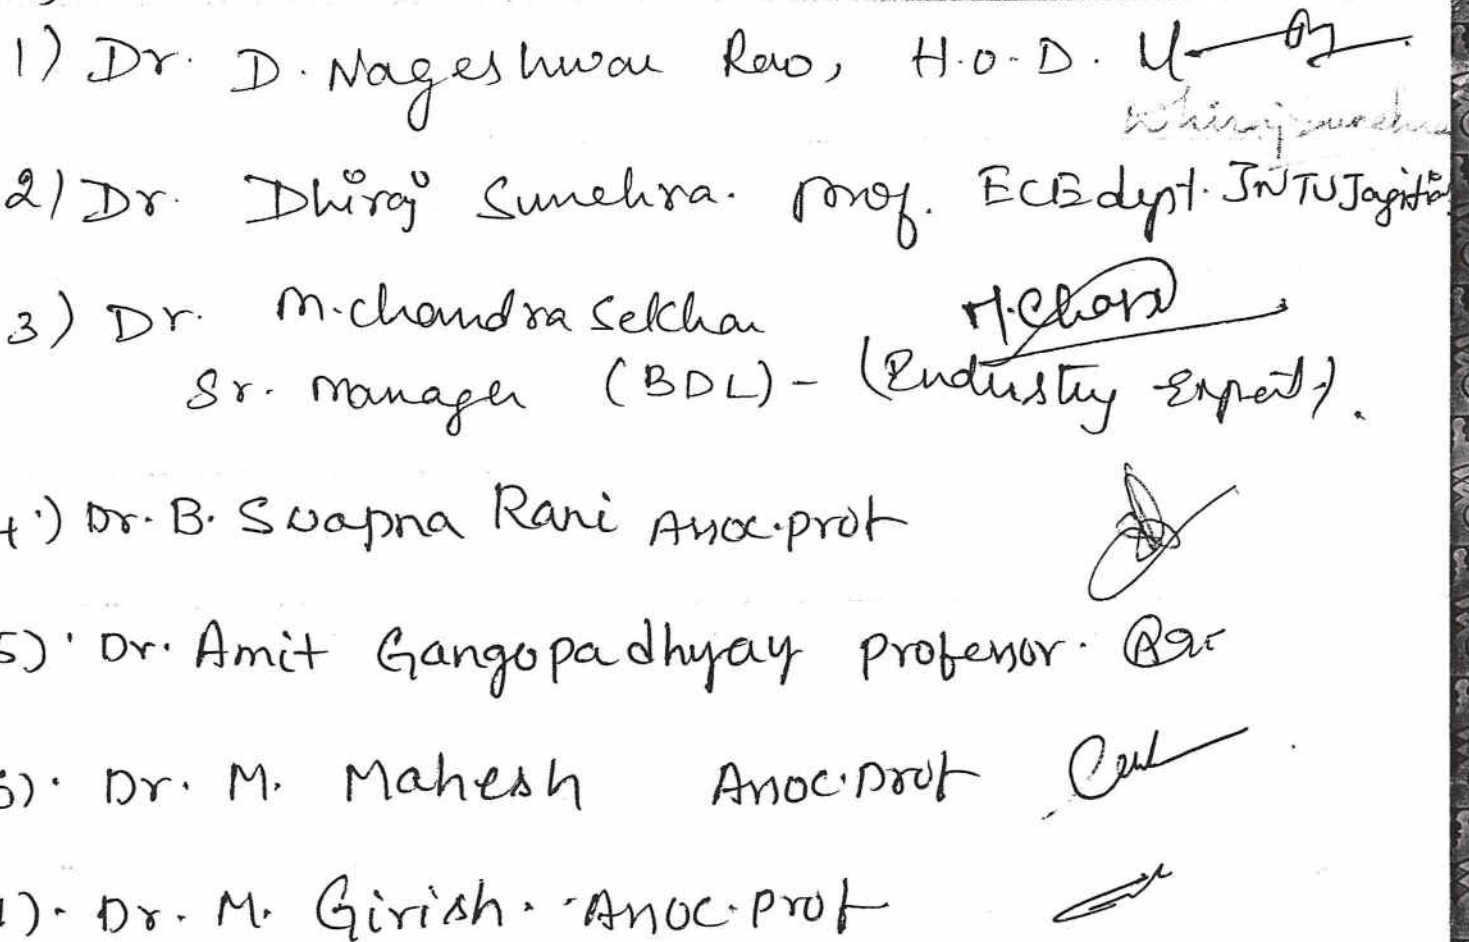 1) Dr. D. Nageshwar Rao, H.O.D.
2) Dr. Dhiraj Sunehra. Prof. ECE dept. JNTU Jagitial
3) Dr. M. Chandra Sekhar M. Chand
Sr. Manager (BDL) - (Industry Expert).
4.) Dr. B. Swapna Rani Assoc. prof
5) Dr. Amit Gangopadhyay Professor.
6). Dr. M. Mahesh Assoc. Prof
7). Dr. M. Girish. Assoc. Prof